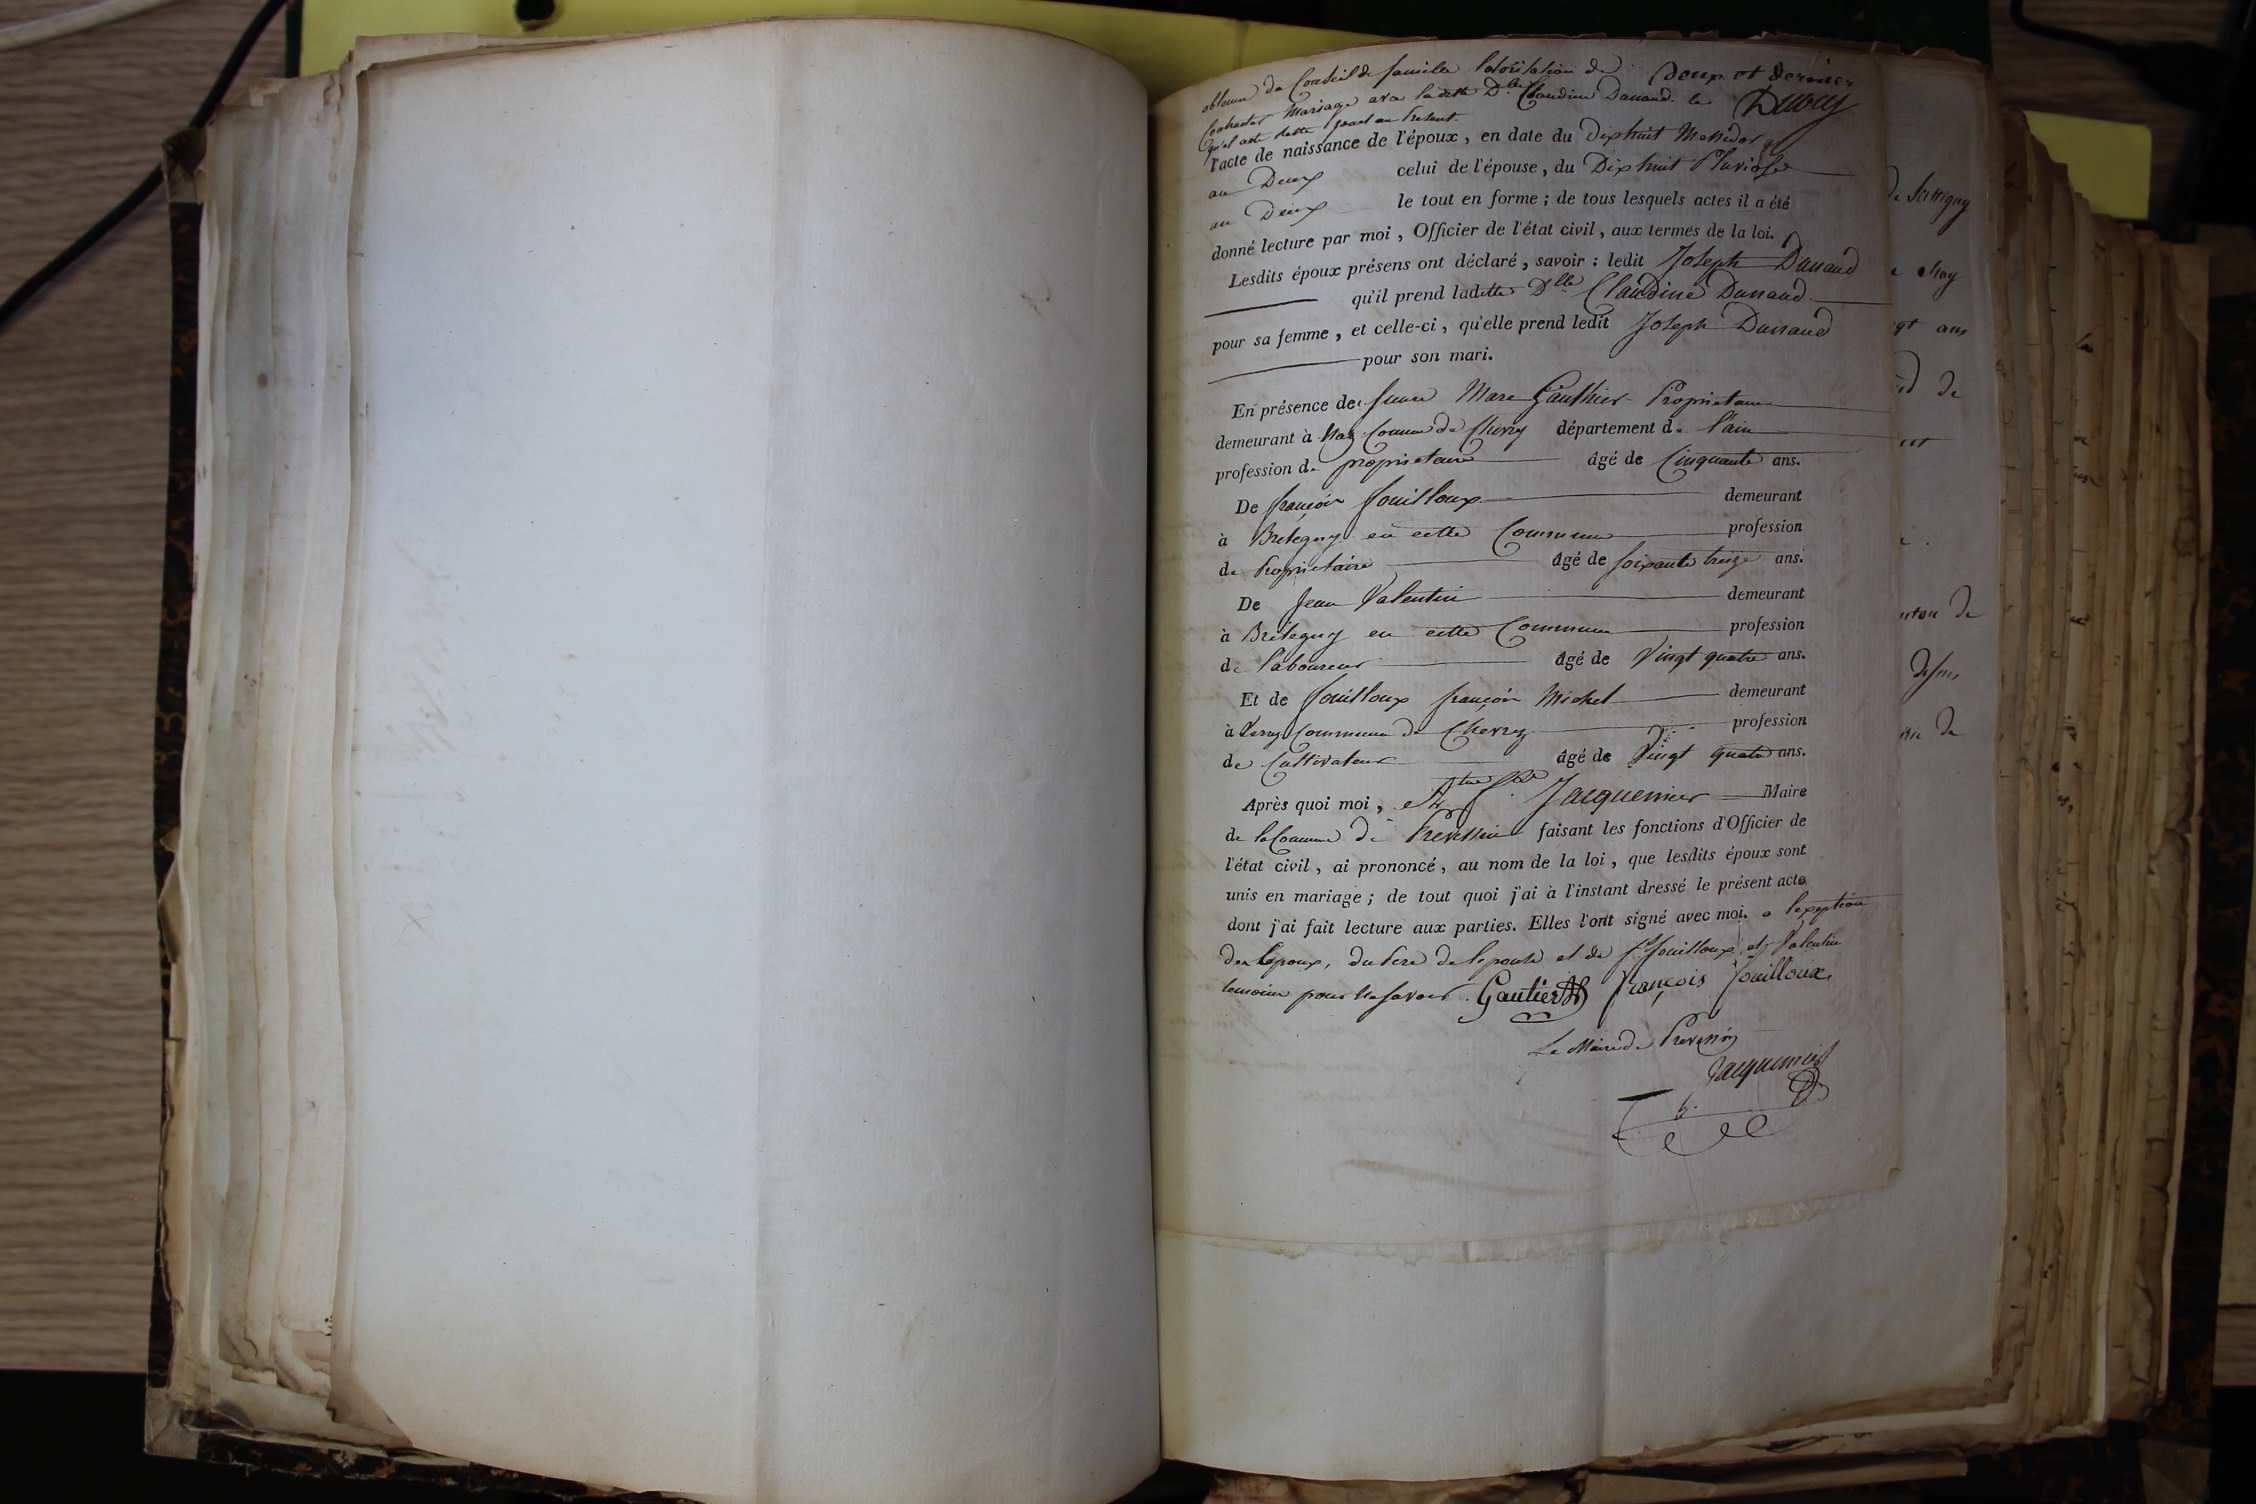 obtenu du Conseil de famille l'atorisation de
Contracter Mariage avec la ditte Dlle Claudine Dunand. le
qu'el acte datte
Deux et dernier
l'acte de naissance de l'époux, en date du Dixhuit Messidor
an Deux celui de l'épouse, du Dixhuit Pluviose
an Deux le tout en forme ; de tous lesquels actes il a été
donné lecture par moi, Officier de l'état civil, aux termes de la loi.
Lesdits époux présens ont déclaré, savoir : ledit Joseph Dunand
qu'il prend laditte Dlle Claudine Dunand
pour sa femme, et celle-ci, qu'elle prend ledit Joseph Dunand
pour son mari.
En présence de Marc Gauthier Propriétaire
demeurant à Naz Commune de Chevry département de l'ain
profession de propriétaire âgé de Cinquante ans.
De françois fouilloux demeurant
à Bretegny en cette Commune profession
de Propriétaire âgé de soixante treize ans.
De Jean Valentin demeurant
à Brétegny en cette Commune profession
de laboureur âgé de Vingt quatre ans.
Et de fouilloux françois Michel demeurant
à Veraz Commune de Chevry profession
de Cultivateur âgé de Vingt quatre ans.
Après quoi moi, Jacquemier Maire
de la Commune de Prevessin faisant les fonctions d'Officier de
l'état civil, ai prononcé, au nom de la loi, que lesdits époux sont
unis en mariage ; de tout quoi j'ai à l'instant dressé le présent acte
dont j'ai fait lecture aux parties. Elles l'ont signé avec moi. a l'exeption
des Epoux, du Pere de l'epouse et de fs fouilloux et Valentin
temoins pour ne savoir. Gautier François Fouilloux
Le Maire de Prevessin
Jacquemier
de Sattigny
ans
de